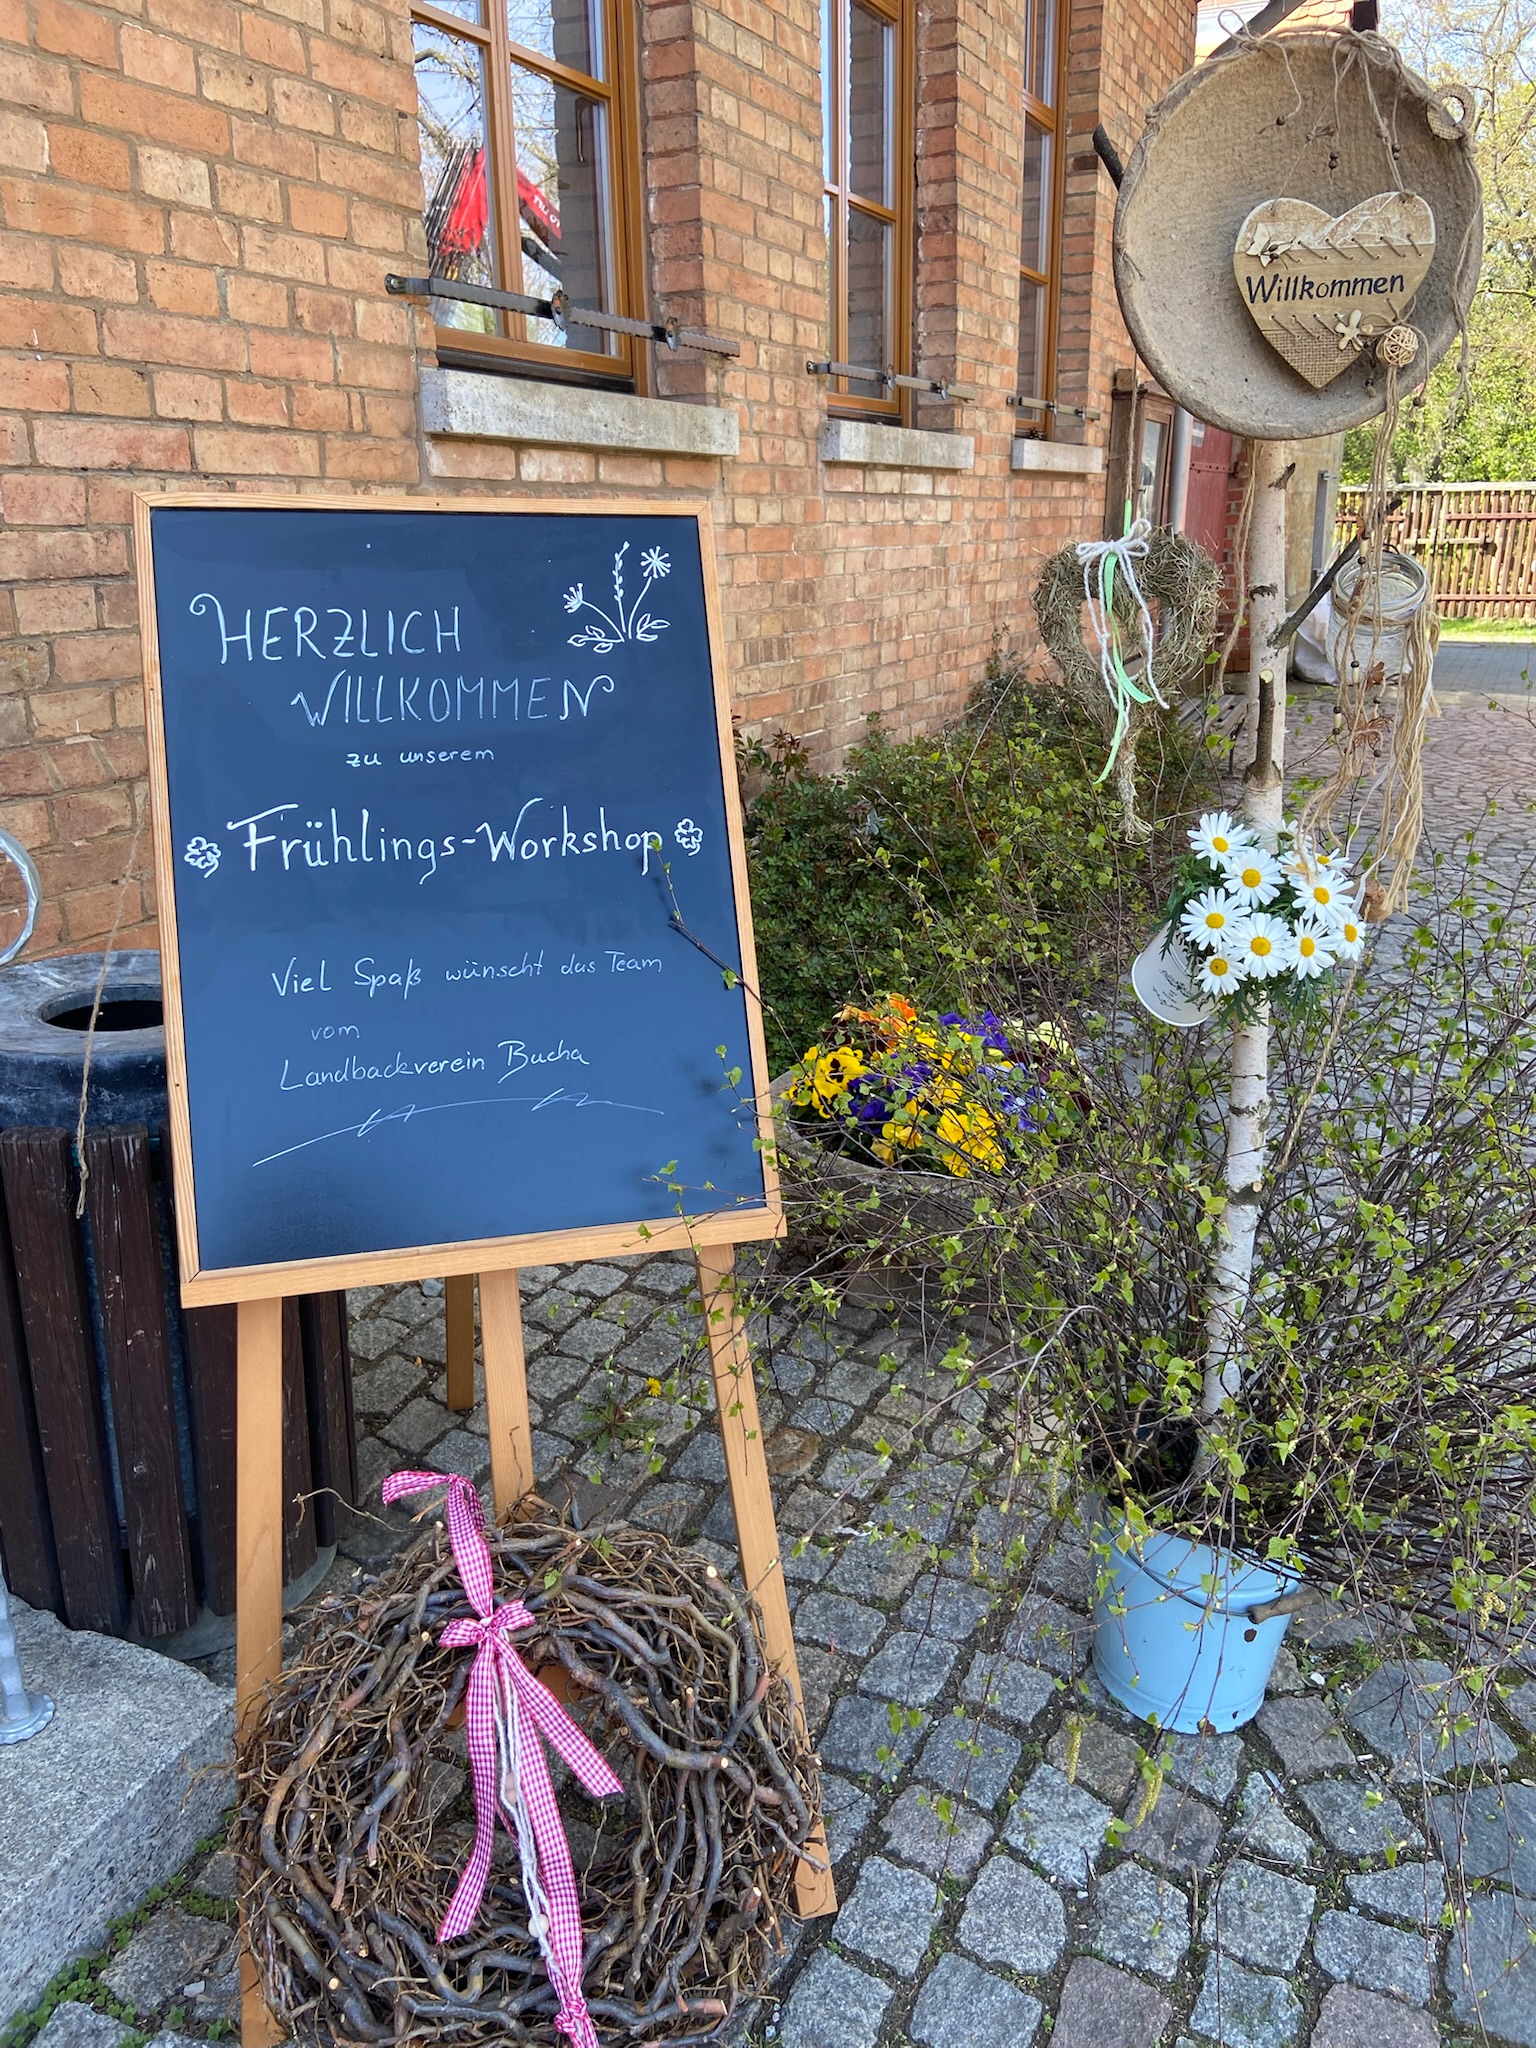 HERZLICH
WILLKOMMEN
zu unserem
Frühlings-Workshop
Viel Spaß wünscht das Team
vom
Landbackverein Bucha
Willkommen